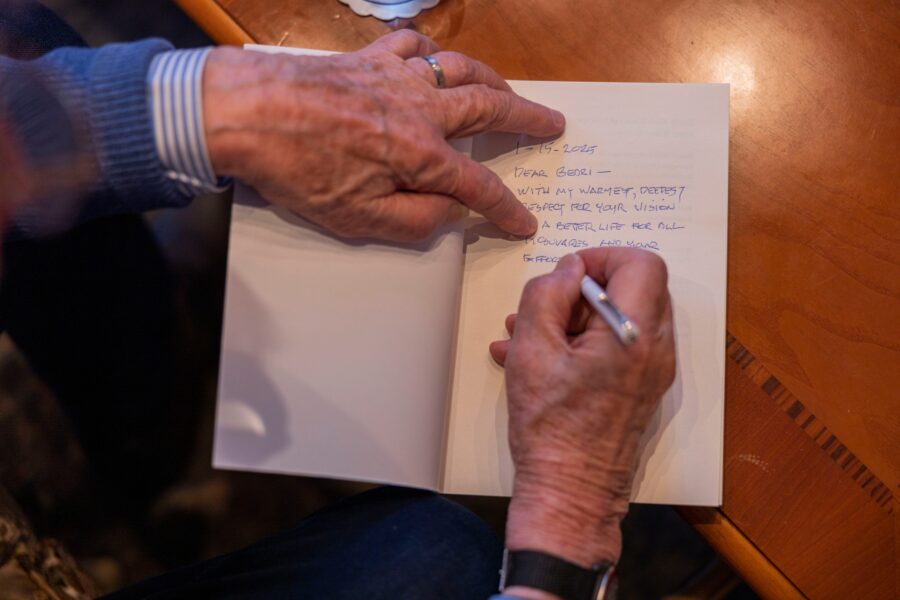 1-15-2025
DEAR BEDRI —
WITH MY WARMEST, DEEPEST
RESPECT FOR YOUR VISION
A BETTER LIFE FOR ALL
AND YOUR
EFFOR